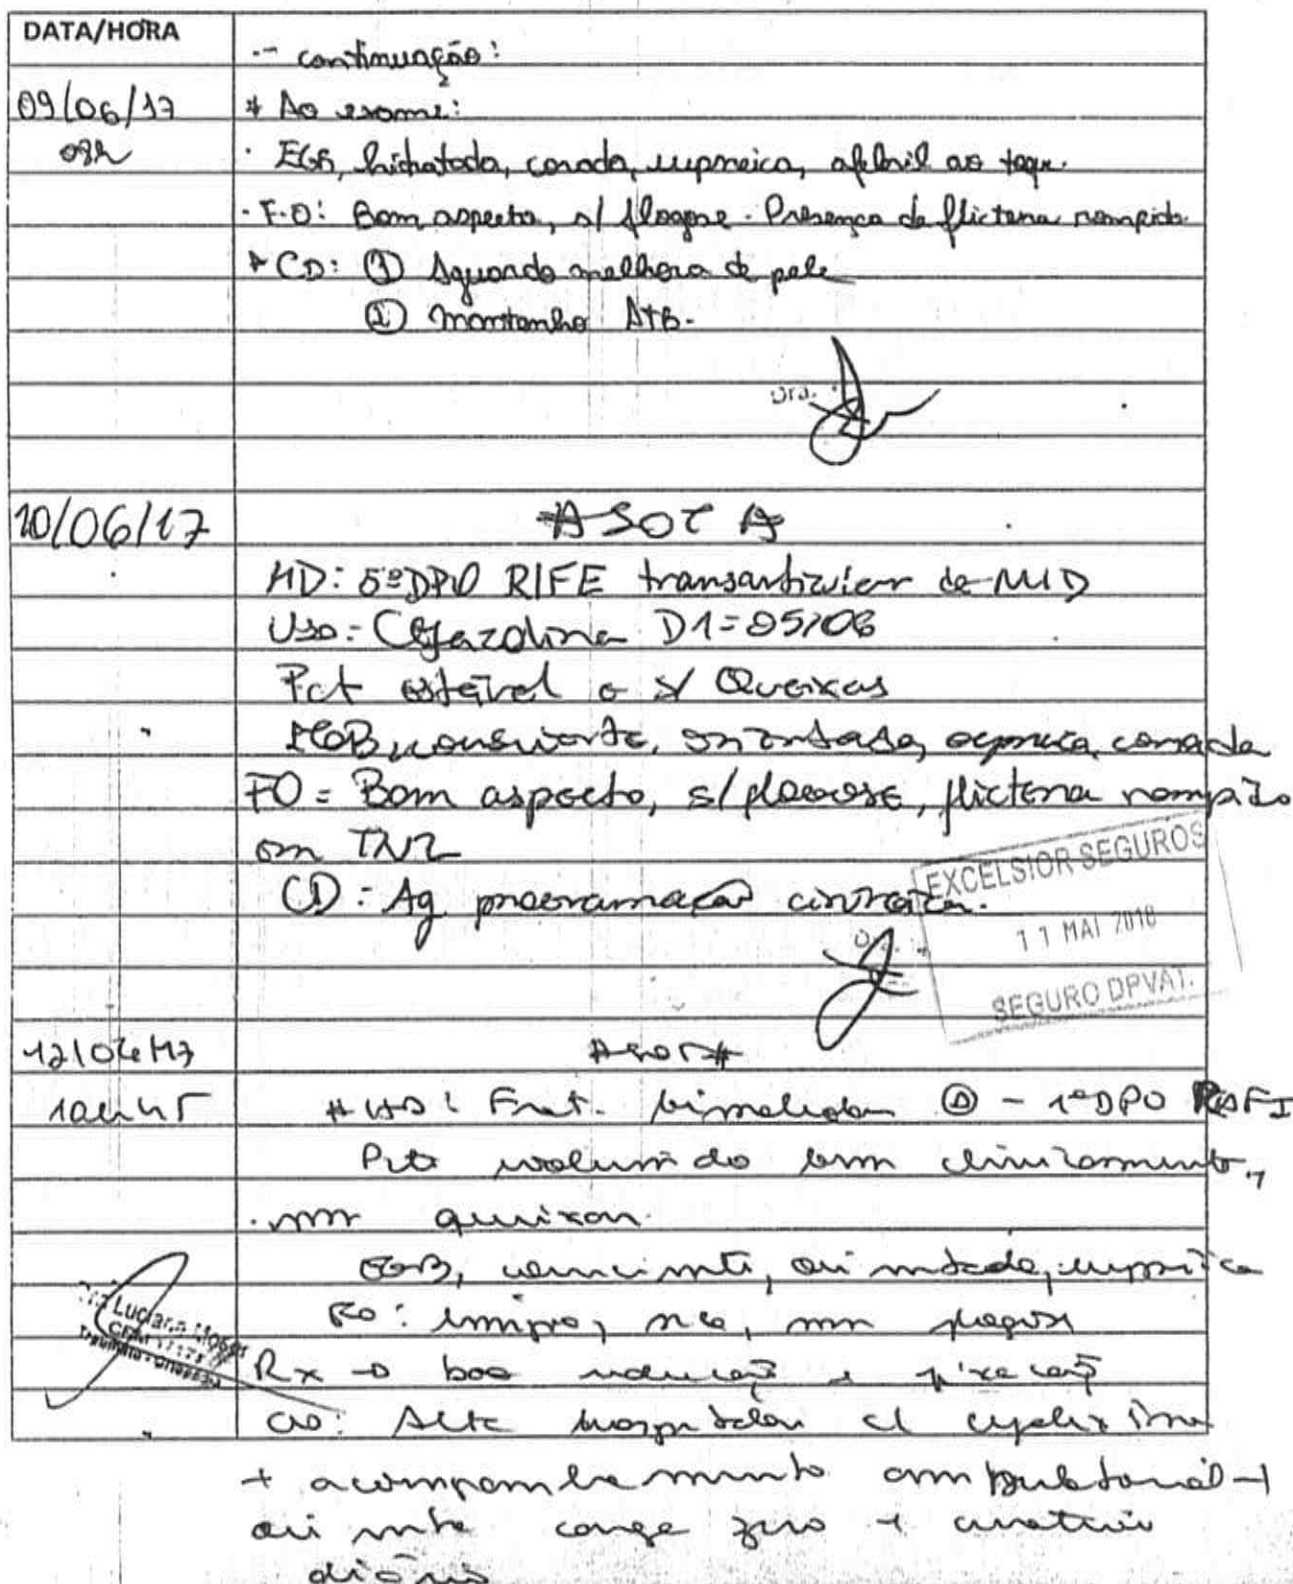 DATA/HORA
.- continuação:
09/06/17 * Ao exame:
08h . EGB, hidratada, corada, eupneica, afebril ao toque.
. F.O: Bom aspecto, s/ flogose. Presença de flictena rompida.
* CD: ① Aguardo melhora de pele
② Mantenho ATB.
Dra.
10/06/17 # SOT #
HD: 5º DPO RIFE transarticular de MID
Uso: Cefazolina D1=05/06
Pct estável e s/ Queixas
EGB, consciente, orientada, eupneica, corada
FO = Bom aspecto, s/ flogose, flictena rompido
em TNZ
CD: Ag programação cirúrgica.
EXCELSIOR SEGUROS
11 MAI 2018
SEGURO DPVAT.
12/06/17 # SOT #
10h45 # HD: Frat. bimaleolar Ⓓ - 1º DPO RAFI
Pcte evoluindo bem clinicamente,
sem queixas.
EGB, consciente, orientada, eupneica
FO: limpa, seca, sem flogose
Luciana
Rx → boa redução e fixação
CD: Alta hospitalar c/ cefalexina
+ acompanhamento ambulatorial +
oriento carga zero + curativo
diário